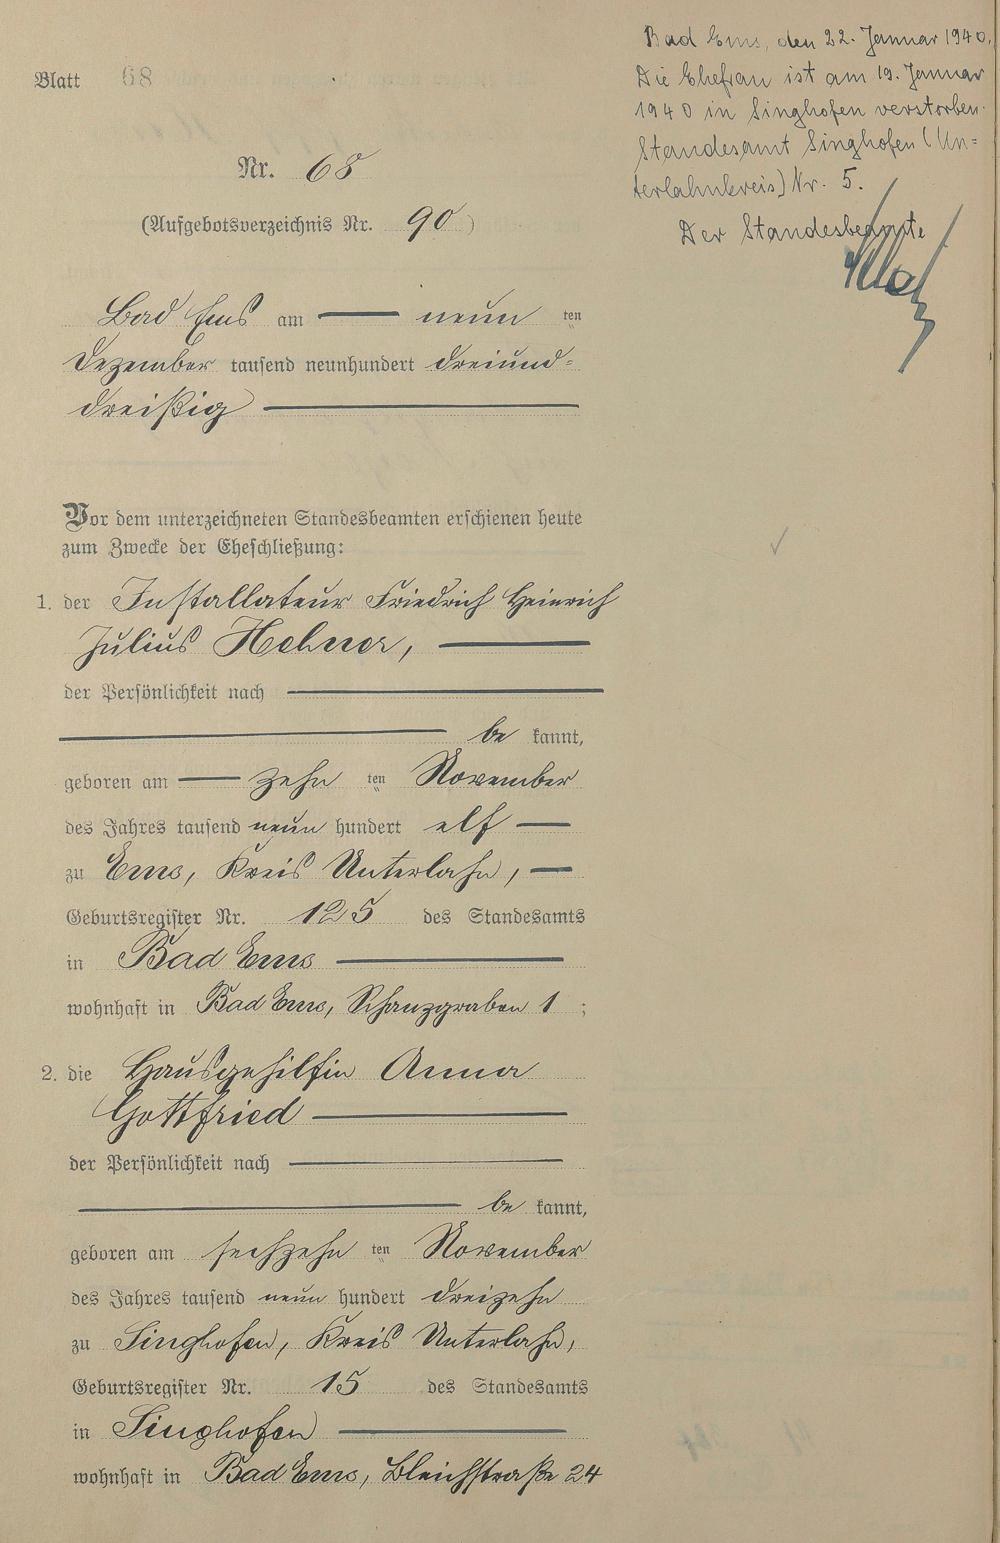 Blatt 68
Nr. 68
(Aufgebotsverzeichnis Nr. 90)
Bad Ems, den 22. Januar 1940.
Die Ehefrau ist am 19. Januar
1940 in Singhofen verstorben.
Standesamt Singhofen (Un=
terlahnkreis) Nr. 5.
Der Standesbeamte
Bad Ems am neun ten
Dezember tausend neunhundert dreiund=
dreißig
Vor dem unterzeichneten Standesbeamten erschienen heute
zum Zwecke der Eheschließung:
1. der Installateur Friedrich Heinrich
Julius Hehner,
der Persönlichkeit nach
be kannt,
geboren am zehn ten November
des Jahres tausend neun hundert elf
zu Ems, Kreis Unterlahn,
Geburtsregister Nr. 125 des Standesamts
in Bad Ems
wohnhaft in Bad Ems, Schanzgraben 1;
2. die Hausgehilfin Anna
Gottfried
der Persönlichkeit nach
be kannt,
geboren am sechzehn ten November
des Jahres tausend neun hundert dreizehn
zu Singhofen, Kreis Unterlahn,
Geburtsregister Nr. 15 des Standesamts
in Singhofen
wohnhaft in Bad Ems, Bleichstraße 24